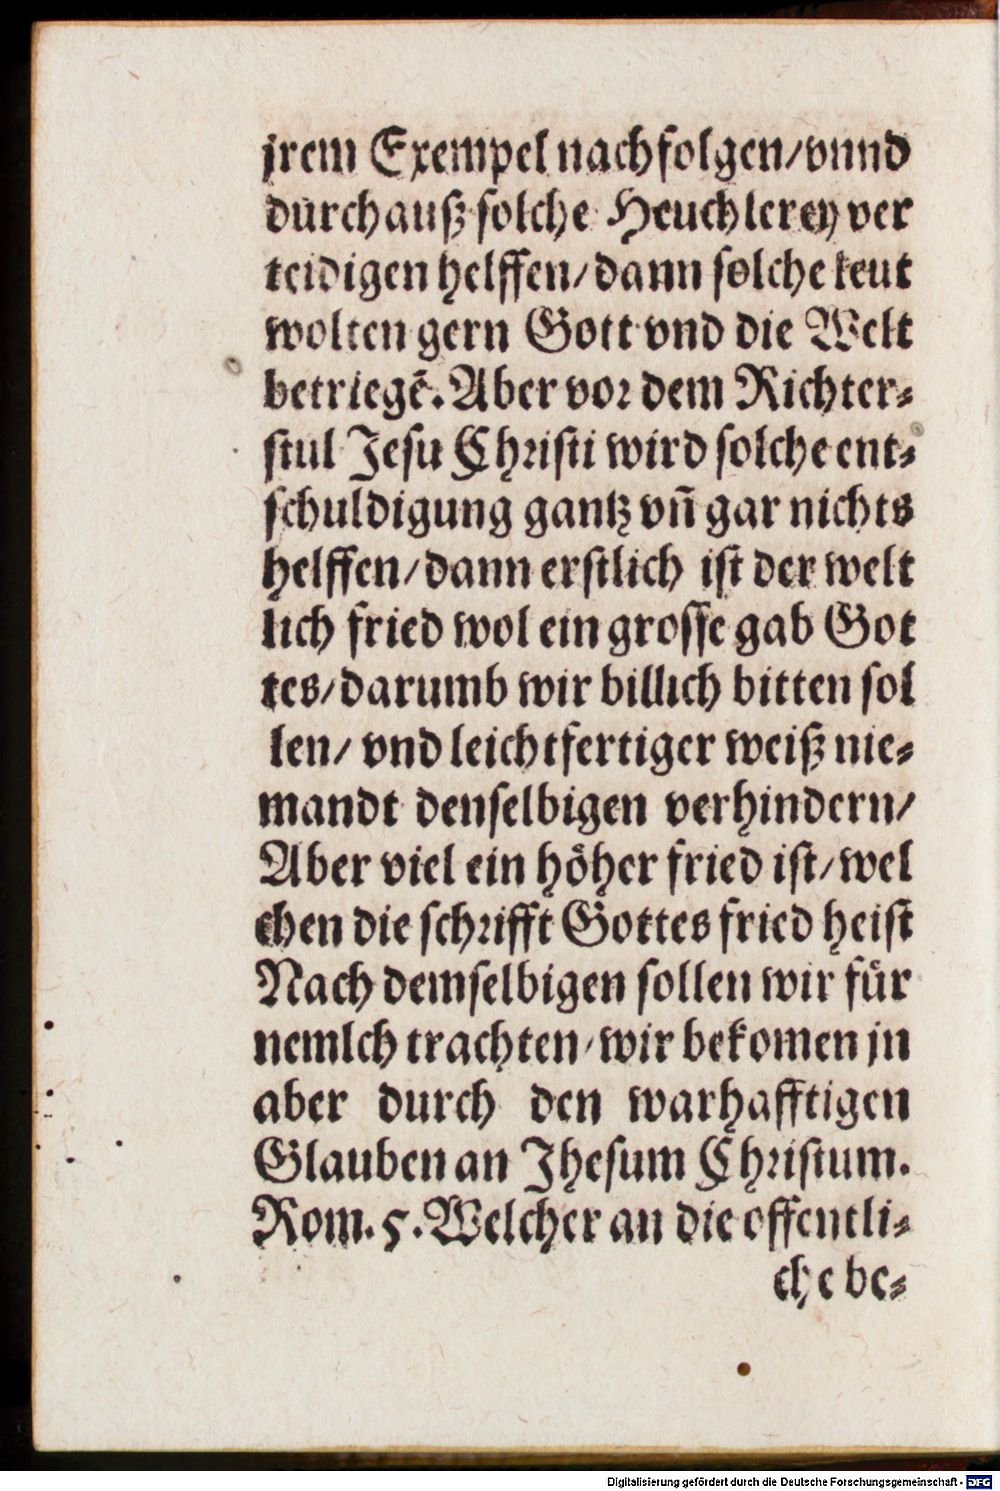 jrem Exempel nachfolgen/vnnd
durchauß solche Heuchlerey ver
teidigen helffen/dann solche leut
wolten gern Gott vnd die Welt
betriegē. Aber vor dem Richter⸗
stul Jesu Christi wird solche ent⸗
schuldigung gantz vñ gar nichts
helffen/dann erstlich ist der welt
lich fried wol ein grosse gab Got
tes/darumb wir billich bitten sol
len/ vnd leichtfertiger weiß nie⸗
mandt denselbigen verhindern/
Aber viel ein höher fried ist/wel
chen die schrifft Gottes fried heist
Nach demselbigen sollen wir für
nemlch trachten/wir bekomen jn
aber durch den warhafftigen
Glauben an Jhesum Christum.
Rom. 5. Welcher an die offentli⸗
che be⸗
Digitalisierung gefördert durch die Deutsche Forschungsgemeinschaft - DFG